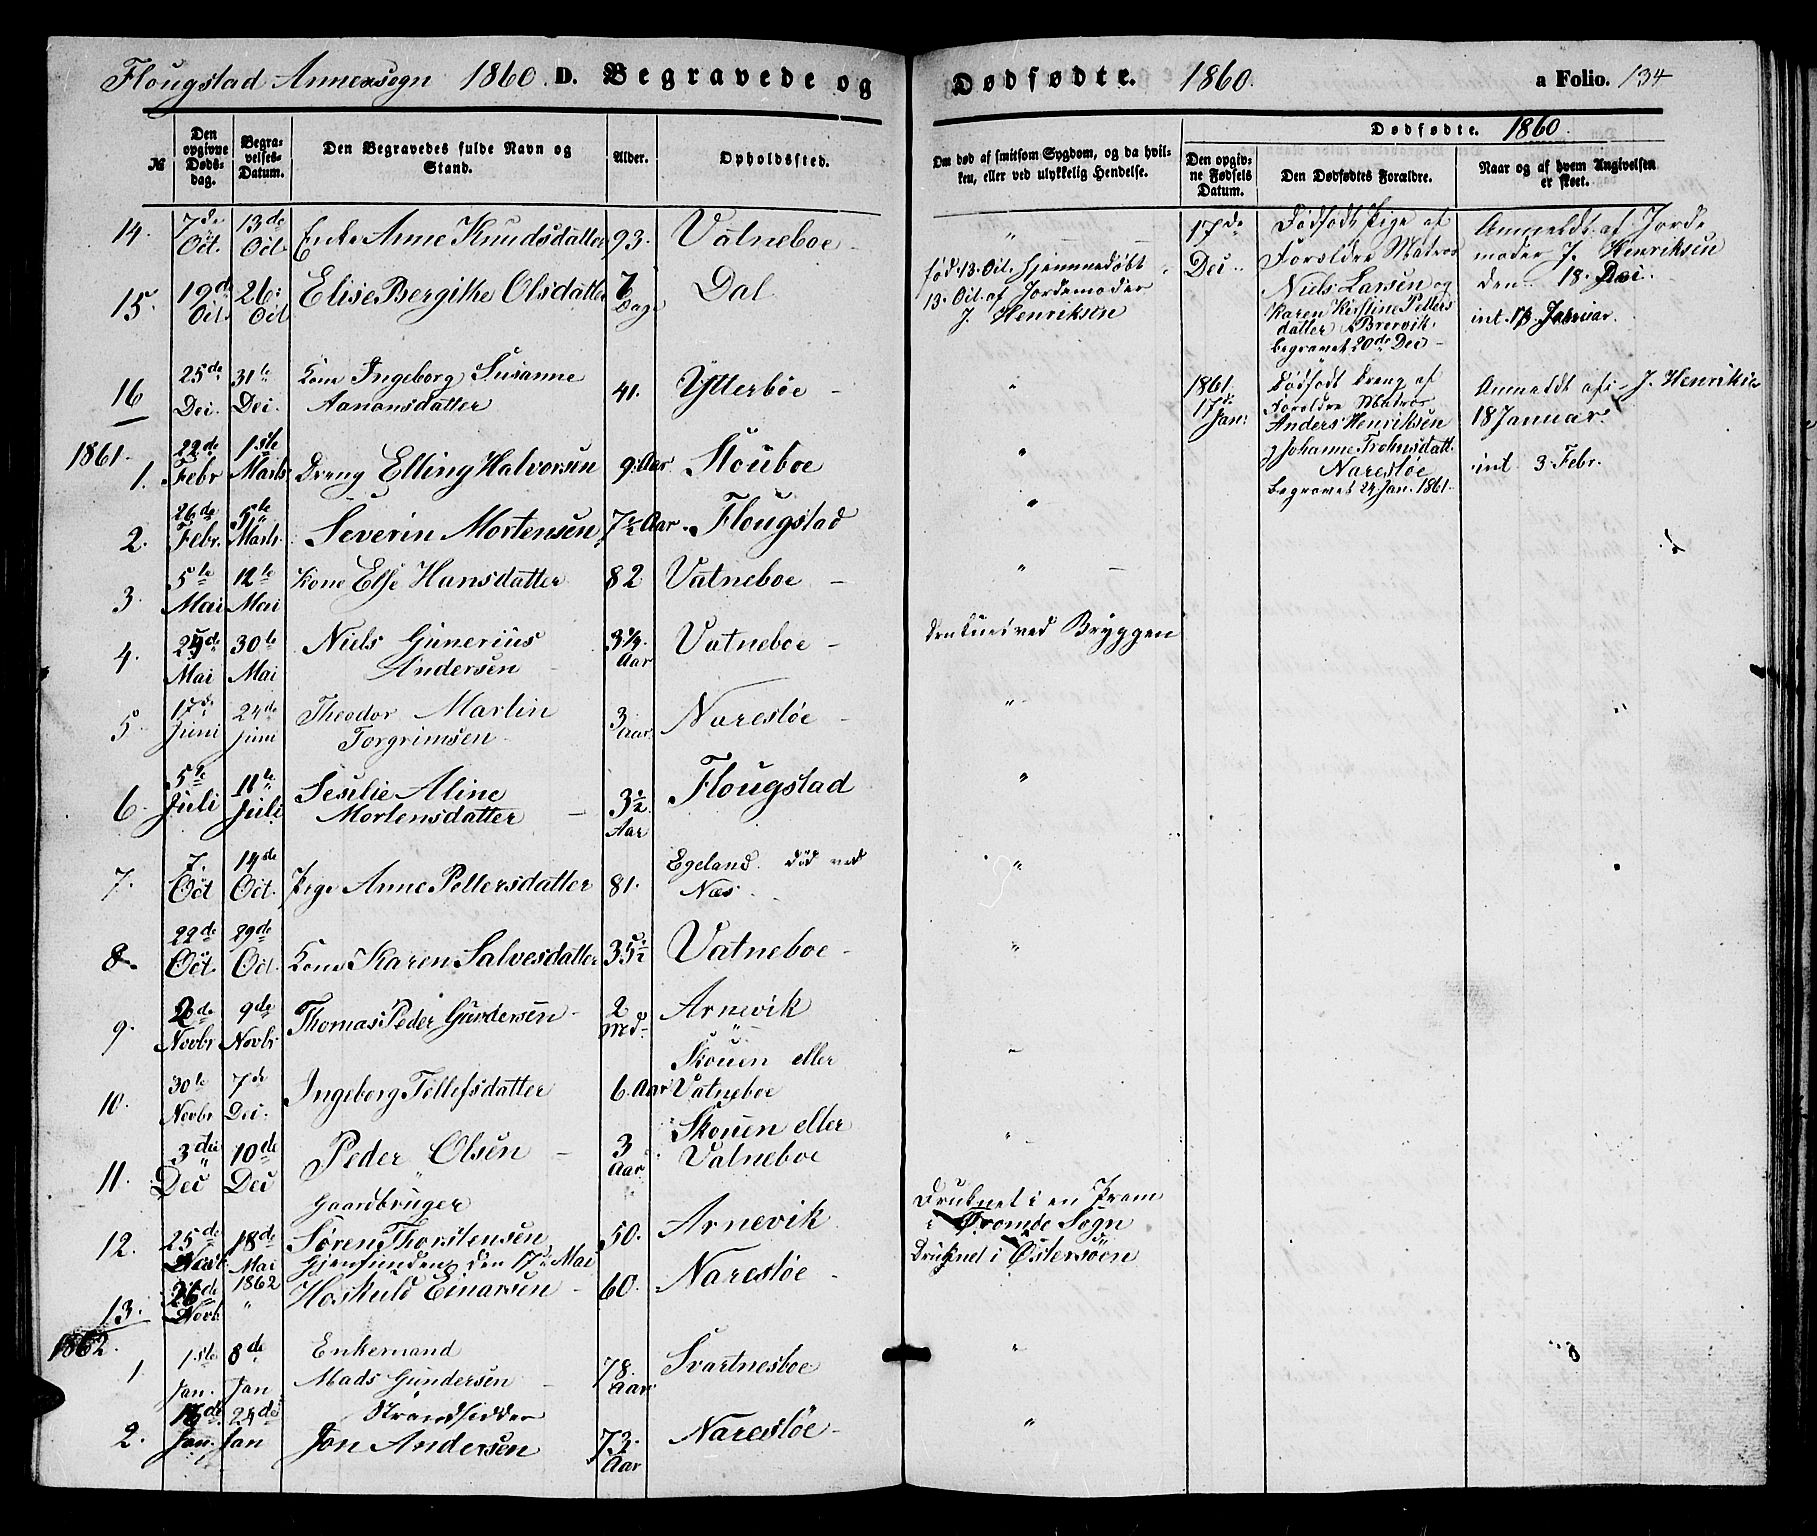 Flougstad Annexsogn 1860 D. Begravede og
Dødfødte. 1860. a Folio. 134
№
Den opgivne Dødsdag.
Begravelses-Datum.
Den Begravedes fulde Navn og Stand.
Alder.
Opholdssted.
Om død af smitsom Sygdom, og da hvilken, eller ved ulykkelig Hendelse.
Dødfødte. 1860.
Den opgivne Fødsels Datum.
Den Dødfødtes Forældre.
Naar og af hvem Angivelsen er skeet.
14. 7de Oct. 13de Oct Enke Anne Knudsdatter 93. Vatneboe - "
15. 19de Oct. 26: Oct Elise Bergithe Olsdatter 6 Dage Dal
fød 13. Oct. Hjemmedøbt
13. Oct. af Jordemoder
J. Henriksen
16 25de Dec. 31te Dec. Kone Ingeborg Susanne
Aanonsdatter 41. Ytterböe - "
1861.
1. 22de Febr 1ste Marts Dreng Elling Halvorsen 9. Aar Stouboe "
2. 26de Febr. 5te Marts. Severin Mortensen 7½ Aar. Flougstad "
3. 5te Mai 12te Mai Kone Else Hansdatter 82 Vatneboe - "
4. Mai 30te Mai Niels Gunerius
Andersen 3¼ Aar Vatneboe - ved Bryggen
5 17de Juni 24de Juni Theodor Martin
Torgrimsen 3 Aar. Narestöe - "
6. 5te Juli 11te Juli Sesilie Aline
Mortensdatter - 3½ Aar Flougstad "
7. 7. Oct 14de Oct. Pige Anne Pettersdatter 81. Egeland. död ved
Næs. "
8. 22de Oct. 29de Oct. Kone Karen Salvesdatter 35½ Vatneboe - "
9. 2de Novbr 9de Novbr Thomas Peder Gundersen 2 Md- Arnevik
10. 30te Novbr 7de Dec. Ingeborg Tellefsdatter 6. Aar Skouen eller
Vatneboe
11. 3die Dec 10de Dec Peder Olsen - 3 Aar Skouen eller
Vatneboe
Gaardbruger
12. 25de 18de Mai 1862 Søren Thorstensen 50. Arnevik
Gjenfunden den 17de Mai
Druknet i en Pram
i Tromöe Sogn
13. 26de Novb. " Hoskuld Einarsen - 60. Narestöe - Druknet i Østersöen
1862.
1. 1ste Jan. 8de Jan. Enkemand
Mads Gundersen - 78. Aar Svartnesboe "
2. 16de Jan. 24de Jan Strandsidder
Jon Andersen 73 Aar Narestöe - "
17de Dec.
Dødfødt Pige af
Foreldre Matros
Niels Larsen og
Karen Kirstine Petters
datter Brevvik.
begravet 20de Dec -
Anmeldt af Jorde
moder J. Henriksen
den 18. Dec.
int. 13 Januar.
1861. 17de Jan:
Dødfødt Dreng af
Foreldre Matros
Anders Henriksen
og Johanne
Narestøe
begravet 24 Jan. 1861.
Anmeldt af J. Henriksen
18 Januar.
int 3 Febr.